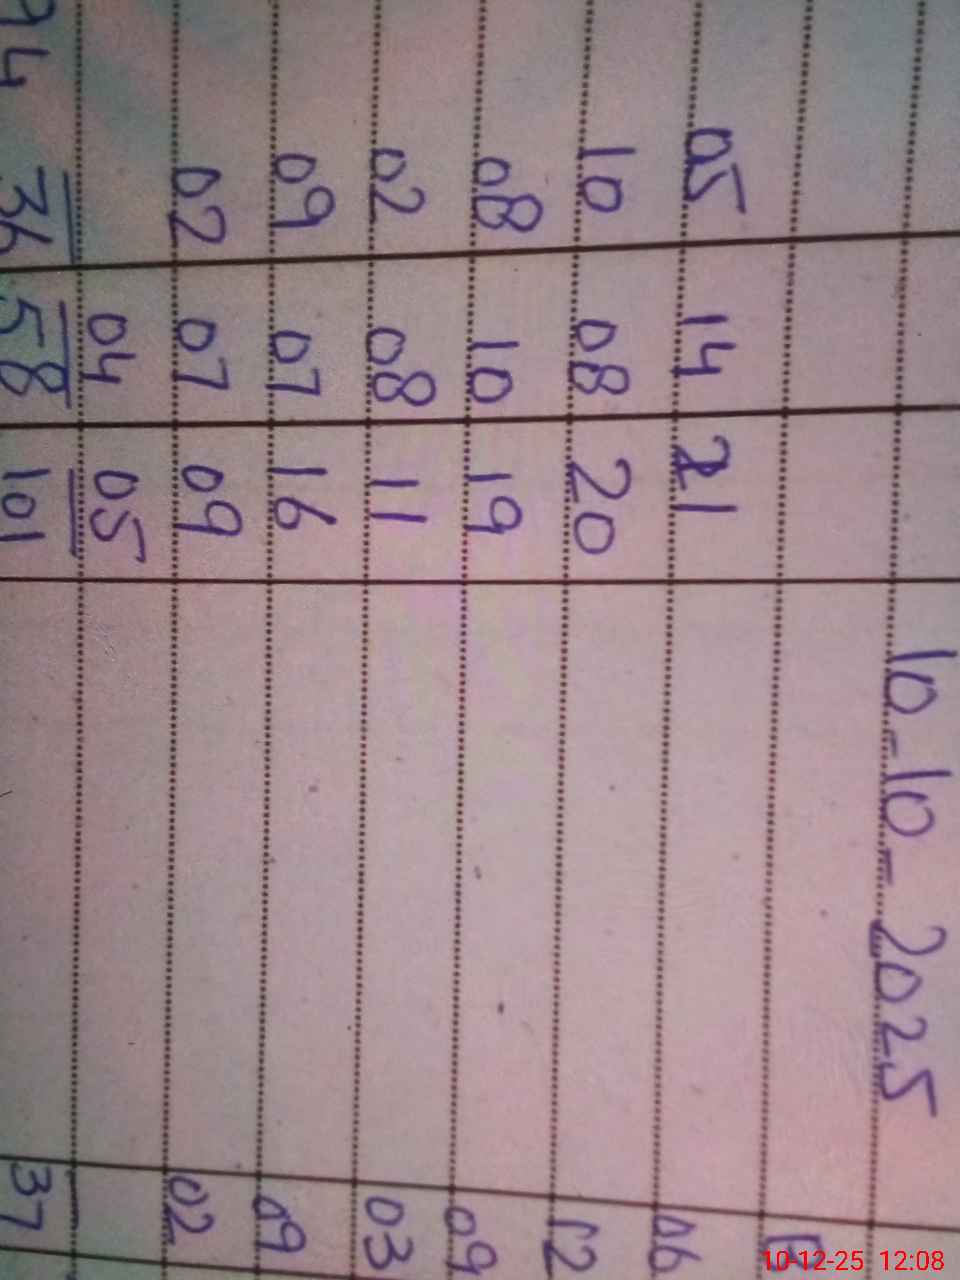 10-10-2025
05 14 21 06
10 08 20 12
08 10 19 09
02 08 11 03
09 07 16 09
02 07 09 02
04 05
94 36 58 101 37
10-12-25 12:08